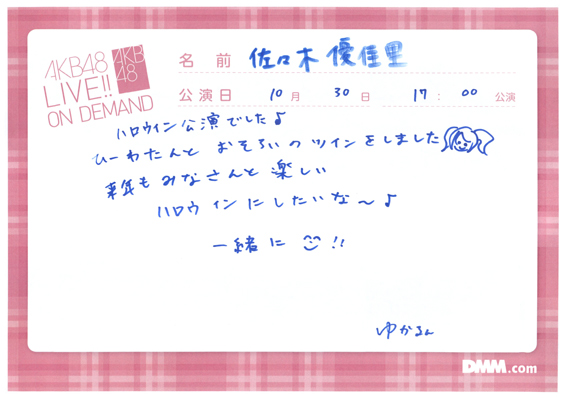 AKB48
LIVE!!
ON DEMAND
AKB
48
名前 佐々木優佳里
公演日 10月 30日 17:00 公演
ハロウィン公演でした♪
ひーわたんと おそろいのツインをしました
来年もみなさんと楽しい
ハロウィンにしたいな〜♪
一緒に ☺!!
ゆかるん
DMM.com